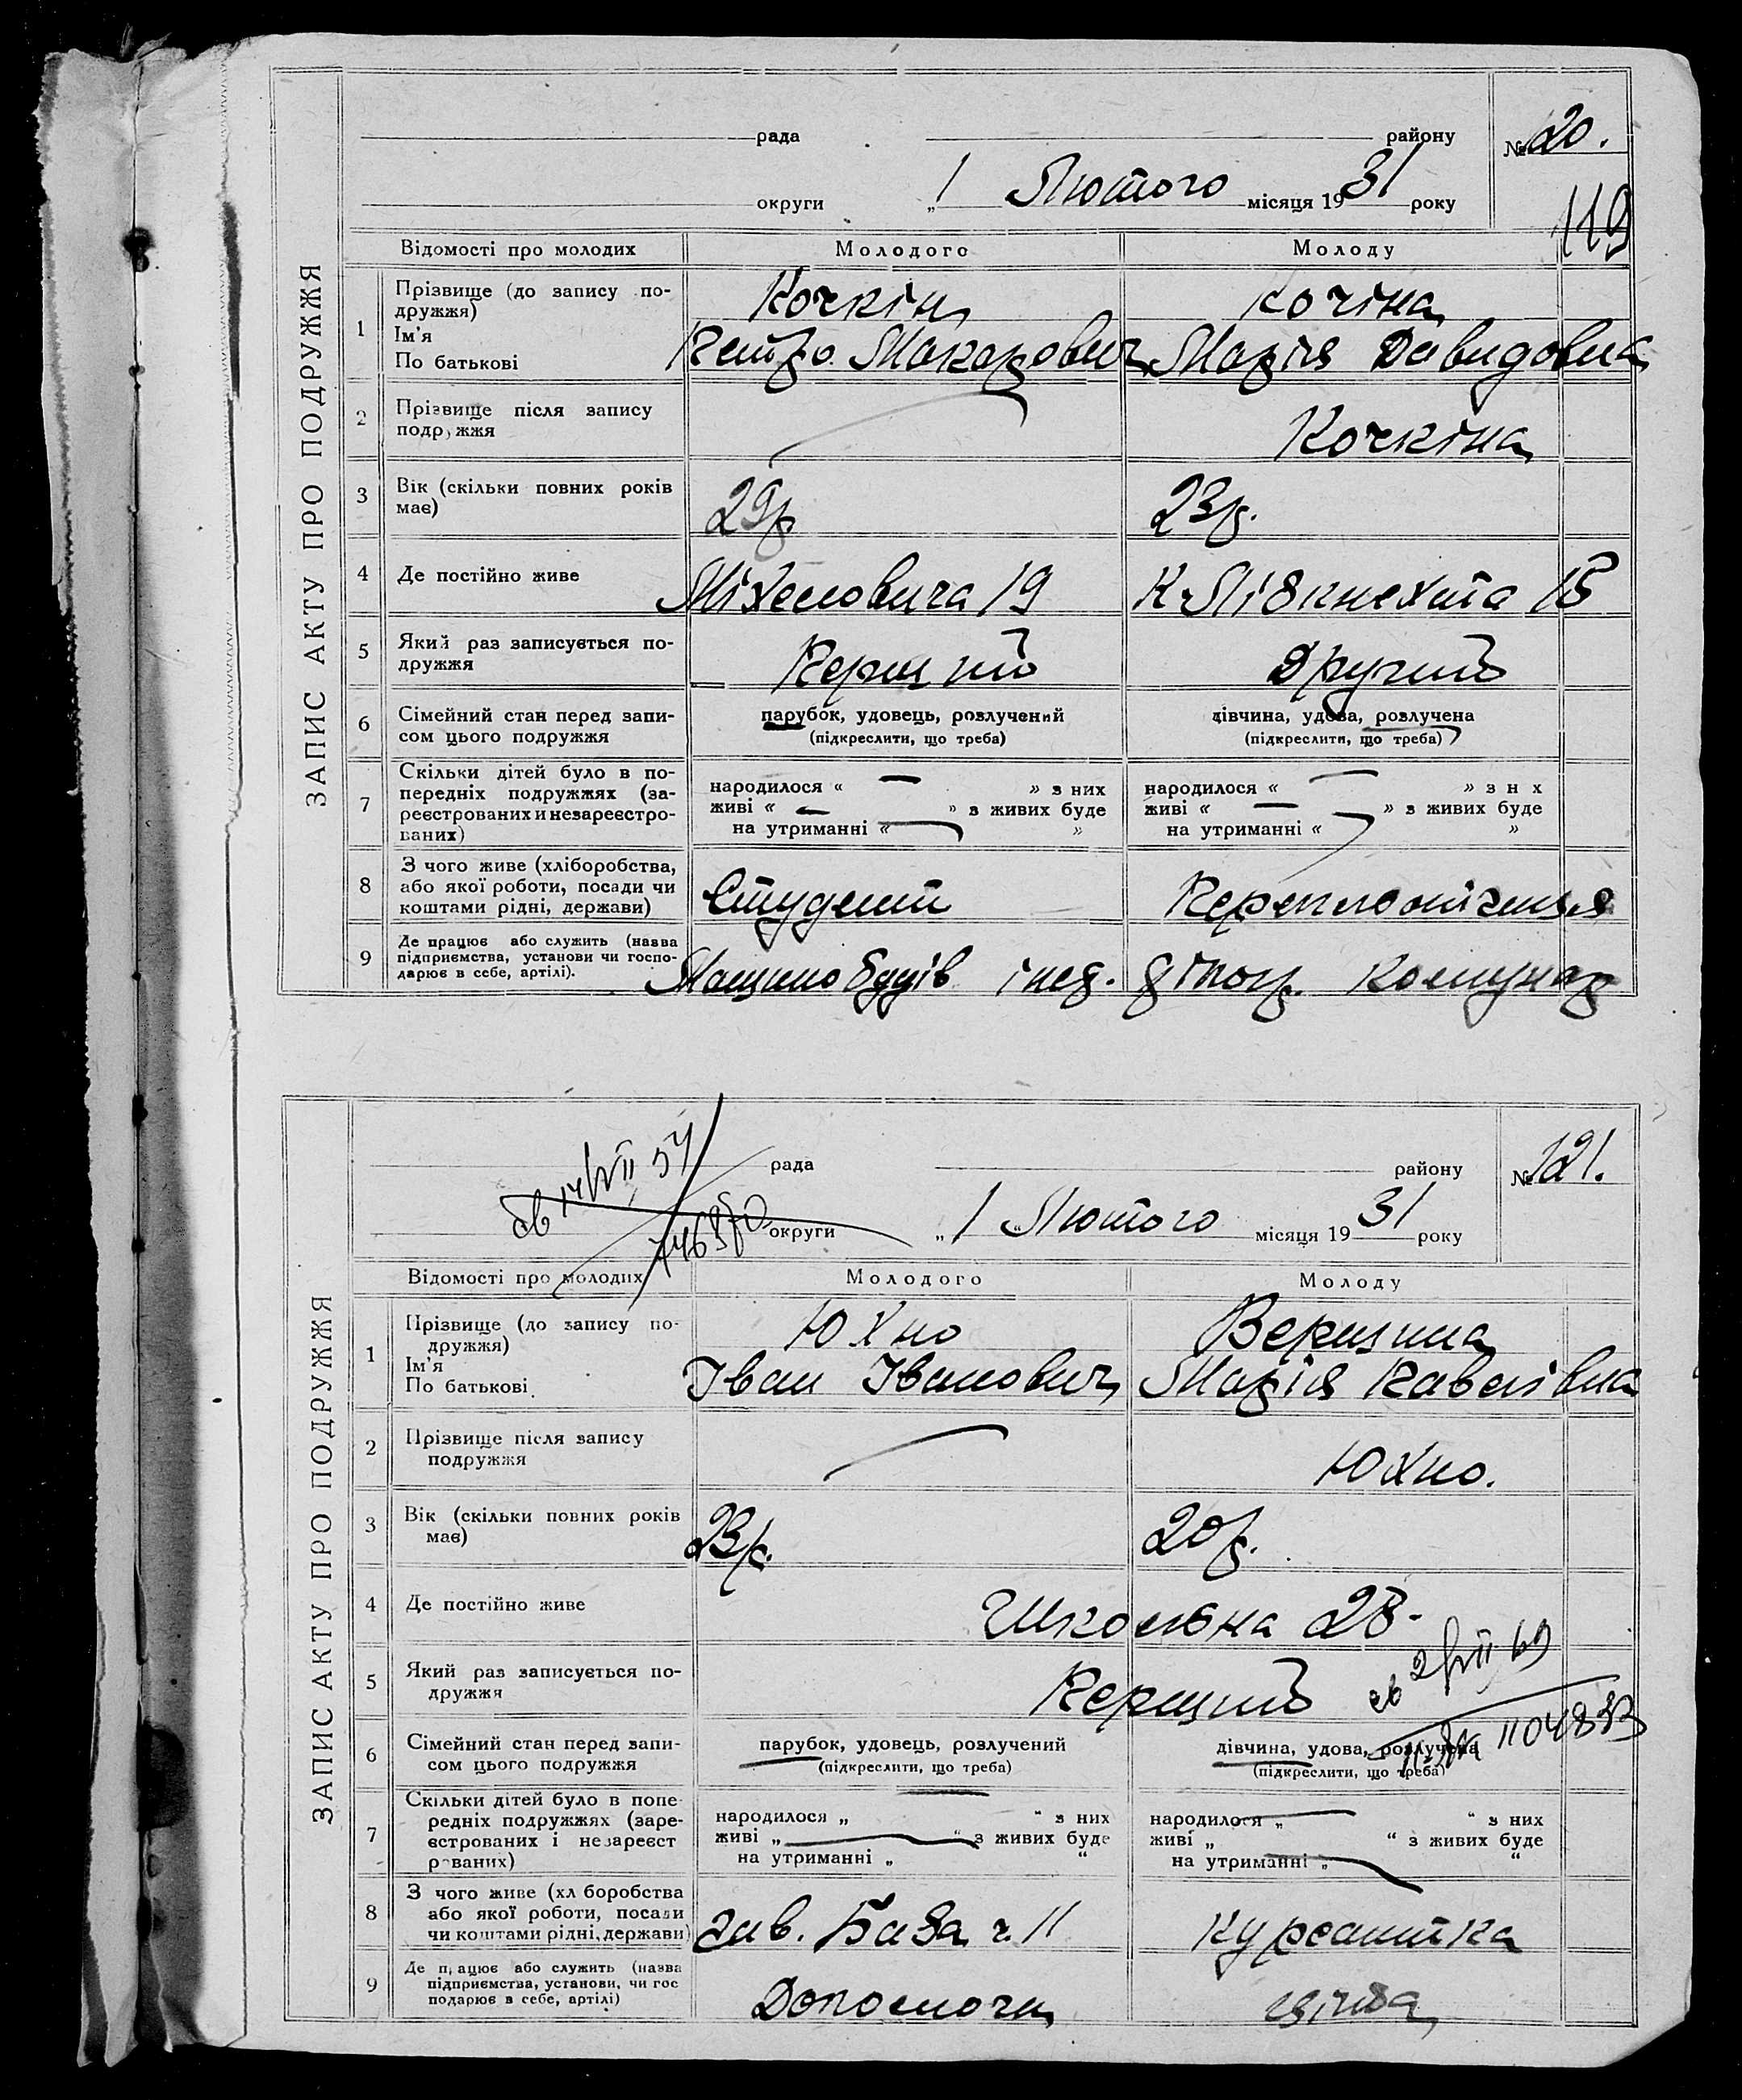 ЗАПИС АКТУ ПРО ПОДРУЖЖЯ
рада району № 20.
округи „1 Лютого місяця 1931 року
119
Відомості про молодих Молодого Молоду
1 Прізвище (до запису по- Кочкін Кочіна
дружжя)
Ім'я Петро Макарович Марія Давидовна
По батькові
2 Прізвище після запису
подружжя Кочкіна
3 Вік (скільки повних років 29р 23р.
має)
4 Де постійно живе 19 К. Лібкнехта 15
5 Який раз записується по- Перший Другий
дружжя
6 Сімейний стан перед запи- парубок, удовець, розлучений дівчина, удова, розлучена
сом цього подружжя (підкреслити, що треба) (підкреслити, що треба)
7 Скільки дітей було в по- народилося « — » з них народилося « — » з н х
передніх подружжях (за- живі « — » з живих буде живі « — » з живих буде
реєстрованих и незареєстро- на утриманні « — » на утриманні « »
ваних)
8 З чого живе (хліборобства,
або якої роботи, посади чи Студент
коштами рідні, держави)
9 Де працює або служить (назва
підприємства, установи чи госпо- Машинобудів
дарює в себе, артілі). Комунар
ЗАПИС АКТУ ПРО ПОДРУЖЖЯ
рада району № 121.
округи „1 Лютого місяця 1931 року
Відомості про молодих Молодого Молоду
1 Прізвище (до запису по- Юхно Вершина
дружжя)
Ім'я Іван Іванович Марія Павлівна
По батькові
2 Прізвище після запису
подружжя Юхно.
3 Вік (скільки повних років 23р. 20р.
має)
4 Де постійно живе Школьна 28.
5 Який раз записується по- Перший
дружжя
11 04833
6 Сімейний стан перед запи- парубок, удовець, розлучений дівчина, удова, розлучена
сом цього подружжя (підкреслити, що треба) (підкреслити, що треба)
7 Скільки дітей було в попе- народилося „ “ з них народилося „ “ з них
редніх подружжях (заре- живі „ “ з живих буде живі „ “ з живих буде
єстрованих і незареєст на утриманні „ “ на утриманні „ “
рованих)
8 З чого живе (хл боробства
або якої роботи, посади зав. База ч. 11 курсантка
чи коштами рідні, держави)
9 Де працює або служить (назва
підприємства, установи, чи гос Допомоги
подарює в себе, артілі)